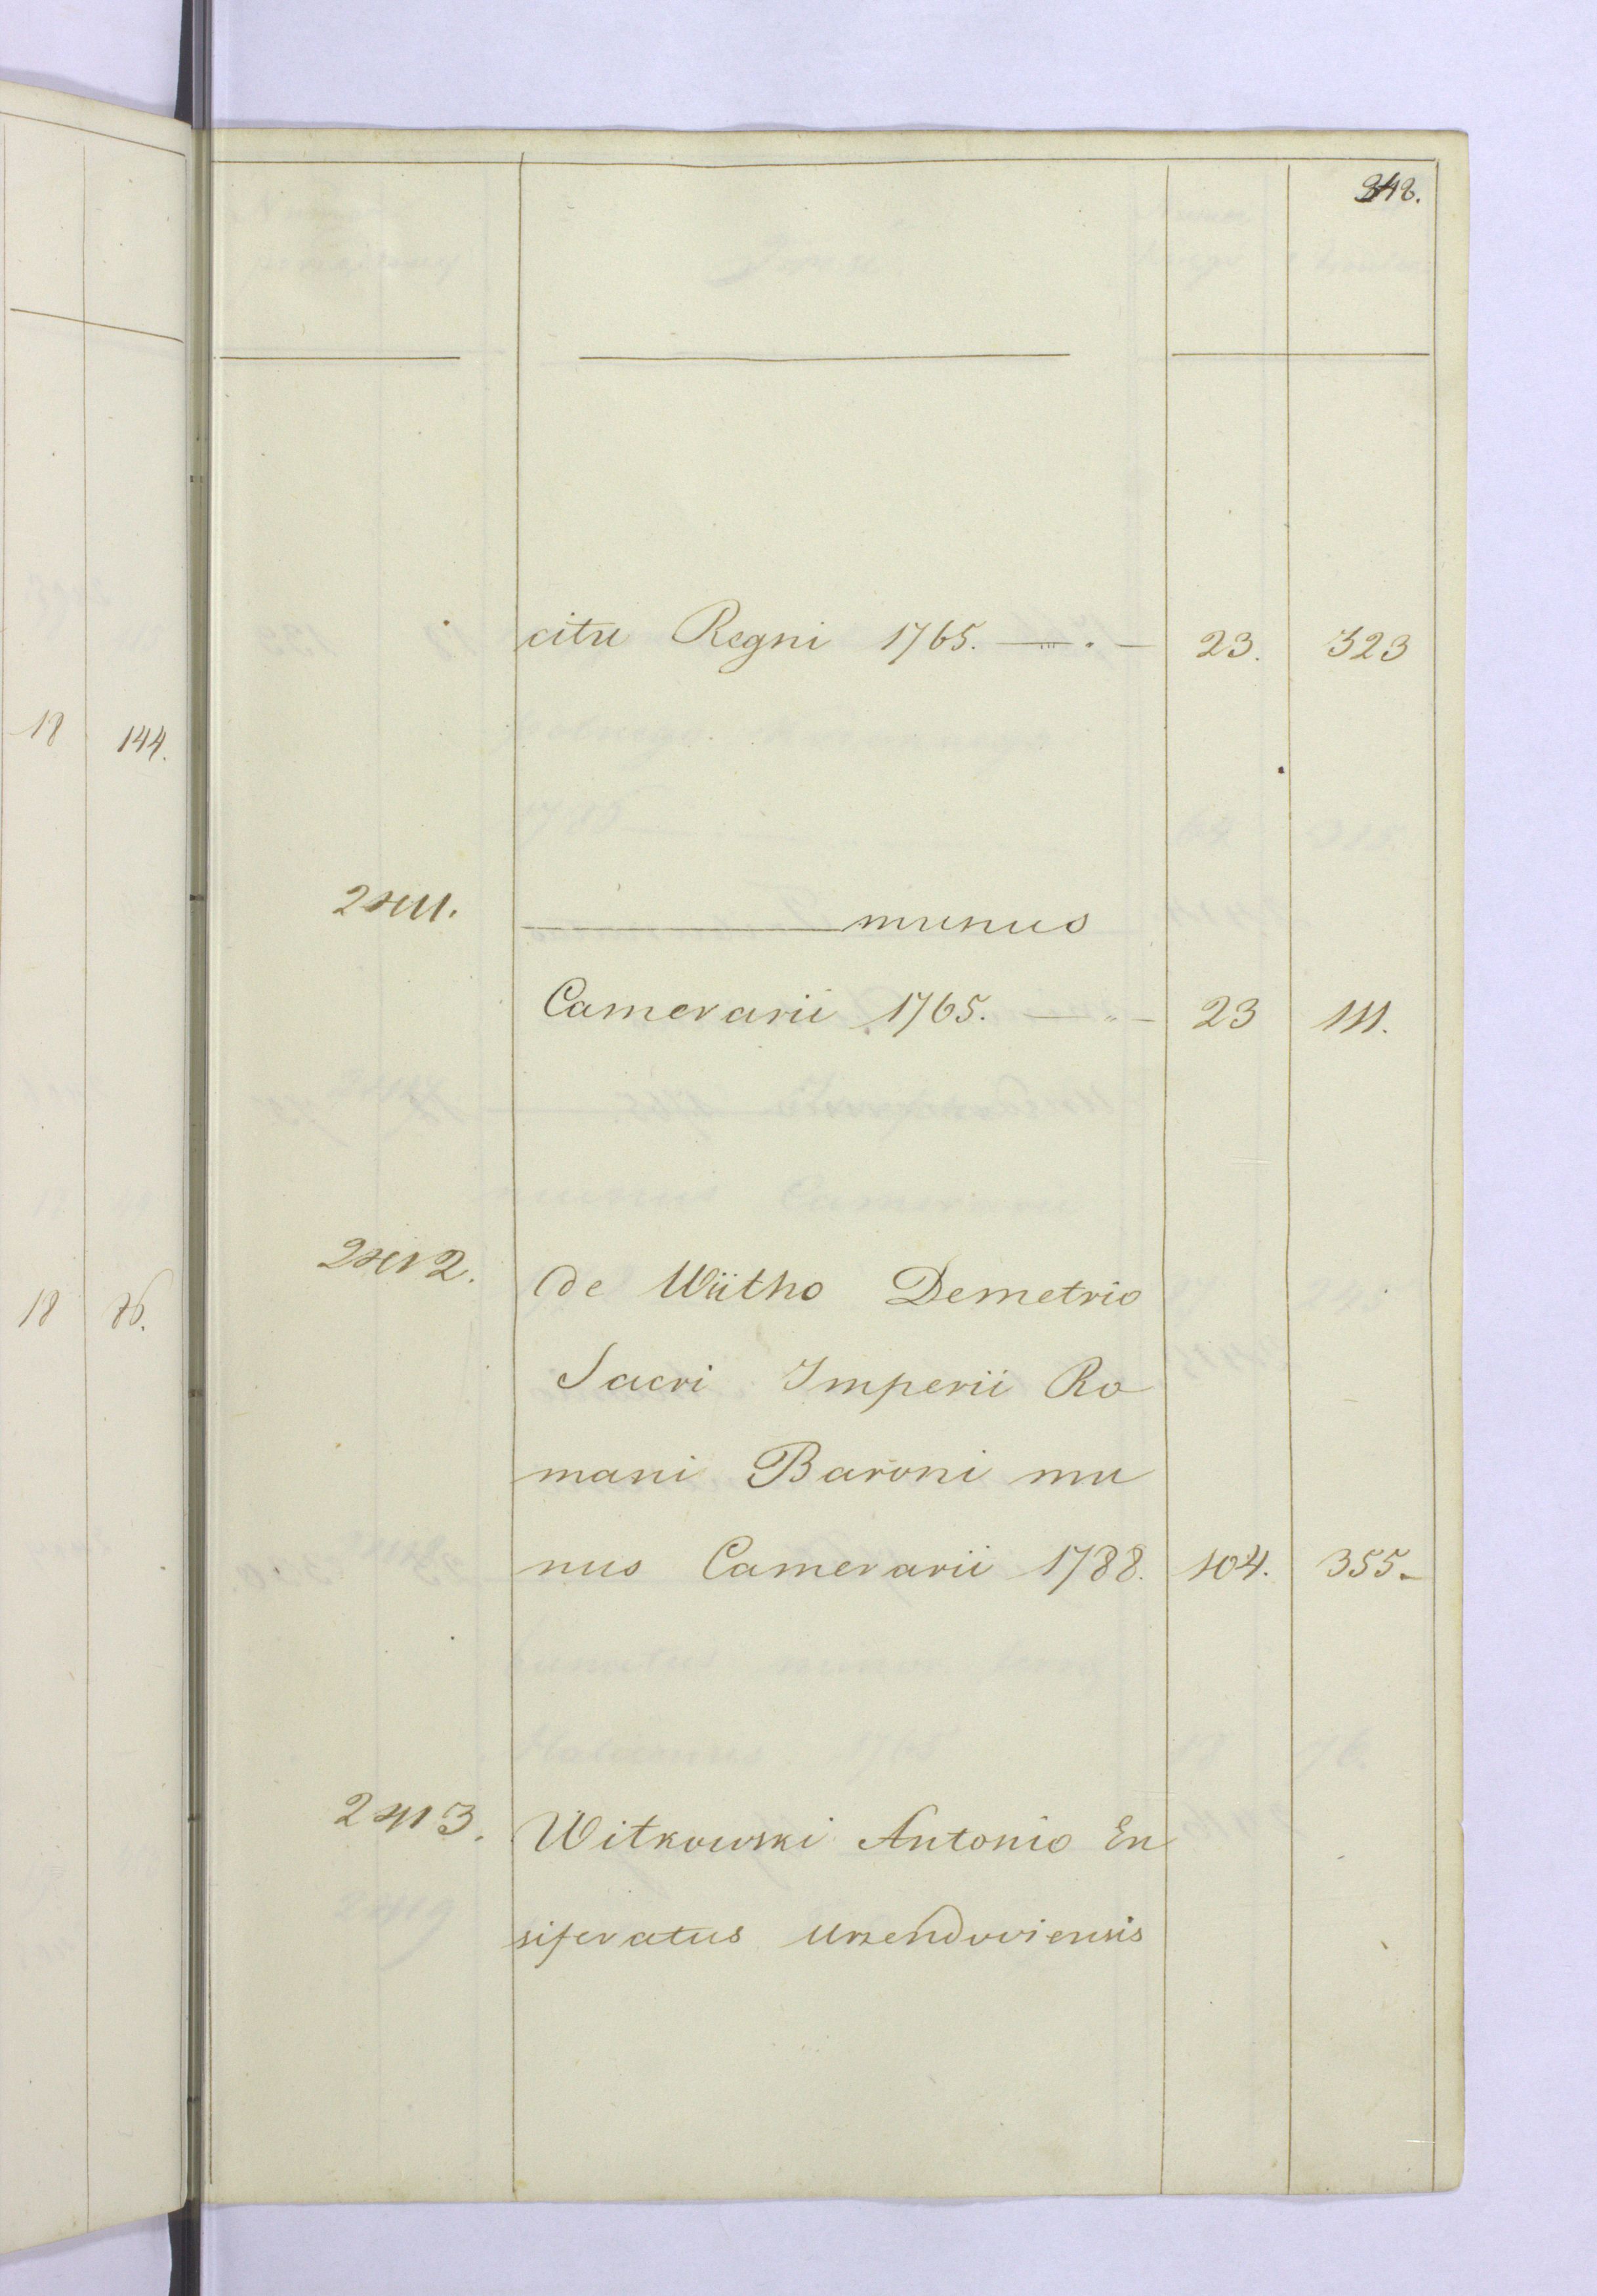 348.
citu Regni 1765. — . — 23. 323
18 144.
2411. ——— munus
Camerarii 1765. — " — 23 111.
2412. de Wiitho Demetrio
18 76.
Sacri Imperii Ro
mani Baroni mu
nus Camerarii 1788. 104. 355.
2413. Witkowski Antonio En
siferatus Urzendoviensis